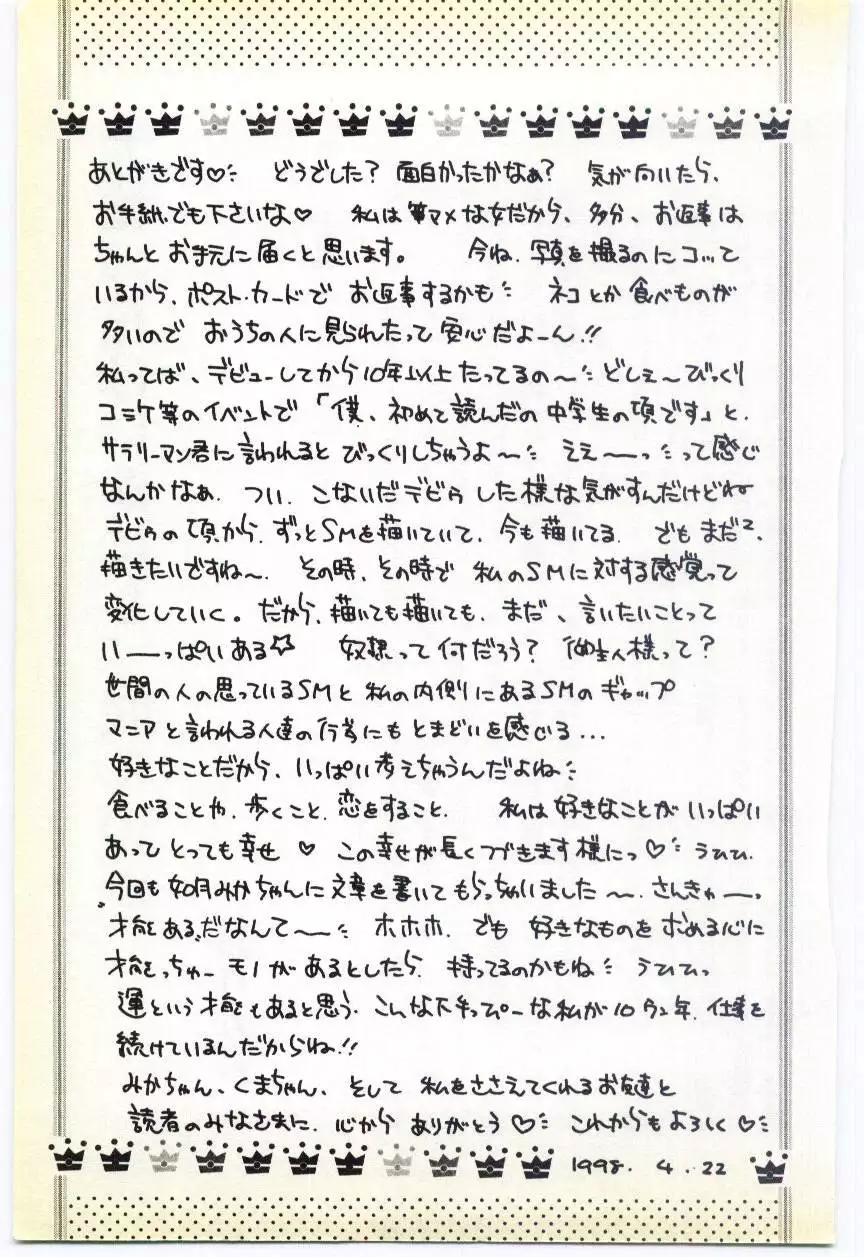 あとがきです♡ どうでした？ 面白かったかなぁ？ 気が向いたら、
お手紙でも下さいな♡ 私は筆マメな女だから、多分、お返事は
ちゃんとお手元に届くと思います。 今ね、写真を撮るのにコッて
いるから、ポスト・カードで お返事するかも ネコとか食べものが
多いので おうちの人に見られたって安心だよーん!!
私ってば、デビューしてから10年以上たってるの〜 どしぇ〜びっくり
コミケ等のイベントで「僕、初めて読んだの中学生の頃です」と、
サラリーマン君に言われると びっくりしちゃうよ〜 ええーーっって感じ
なんかなぁ、つい、こないだデビゥした様な気がすんだけどねぇ
デビゥの頃から、ずっとSMを描いていて、今も描いてる。 でもまだ2、
描きたいですね〜。 その時、その時で 私のSMに対する感覚って
変化していく。だから、描いても描いても、まだ、言いたいことって
いーーっぱいある☆ 奴隷って何だろう？ 御主人様って？
世間の人の思っているSMと 私の内側にあるSMのギャップ
マニアと言われる人達の行為にもとまどいを感じる...
好きなことだから、いっぱい考えちゃうんだよね
食べることや、歩くこと、恋をすること、 私は好きなことがいっぱい
あって とっても幸せ♡ この幸せが長くつづきます様にっ♡ うひひ、
今回も如月みかちゃんに文章を書いてもらっちゃいました〜、さんきゅーっ
才能あるだなんて〜 ホホホ、でも 好きなものを求める心に
才能っちゅーモノがあるとしたら、持ってるのかもね うひひっ
運という才能もあると思う、こんな下手っぴーな私が10ウン年、仕事を
続けているんだからね!!
みかちゃん、くまちゃん、そして 私をささえてくれるお友達と
読者のみなさまに、心から ありがとう♡ これからもよろしく♡
1998. 4. 22